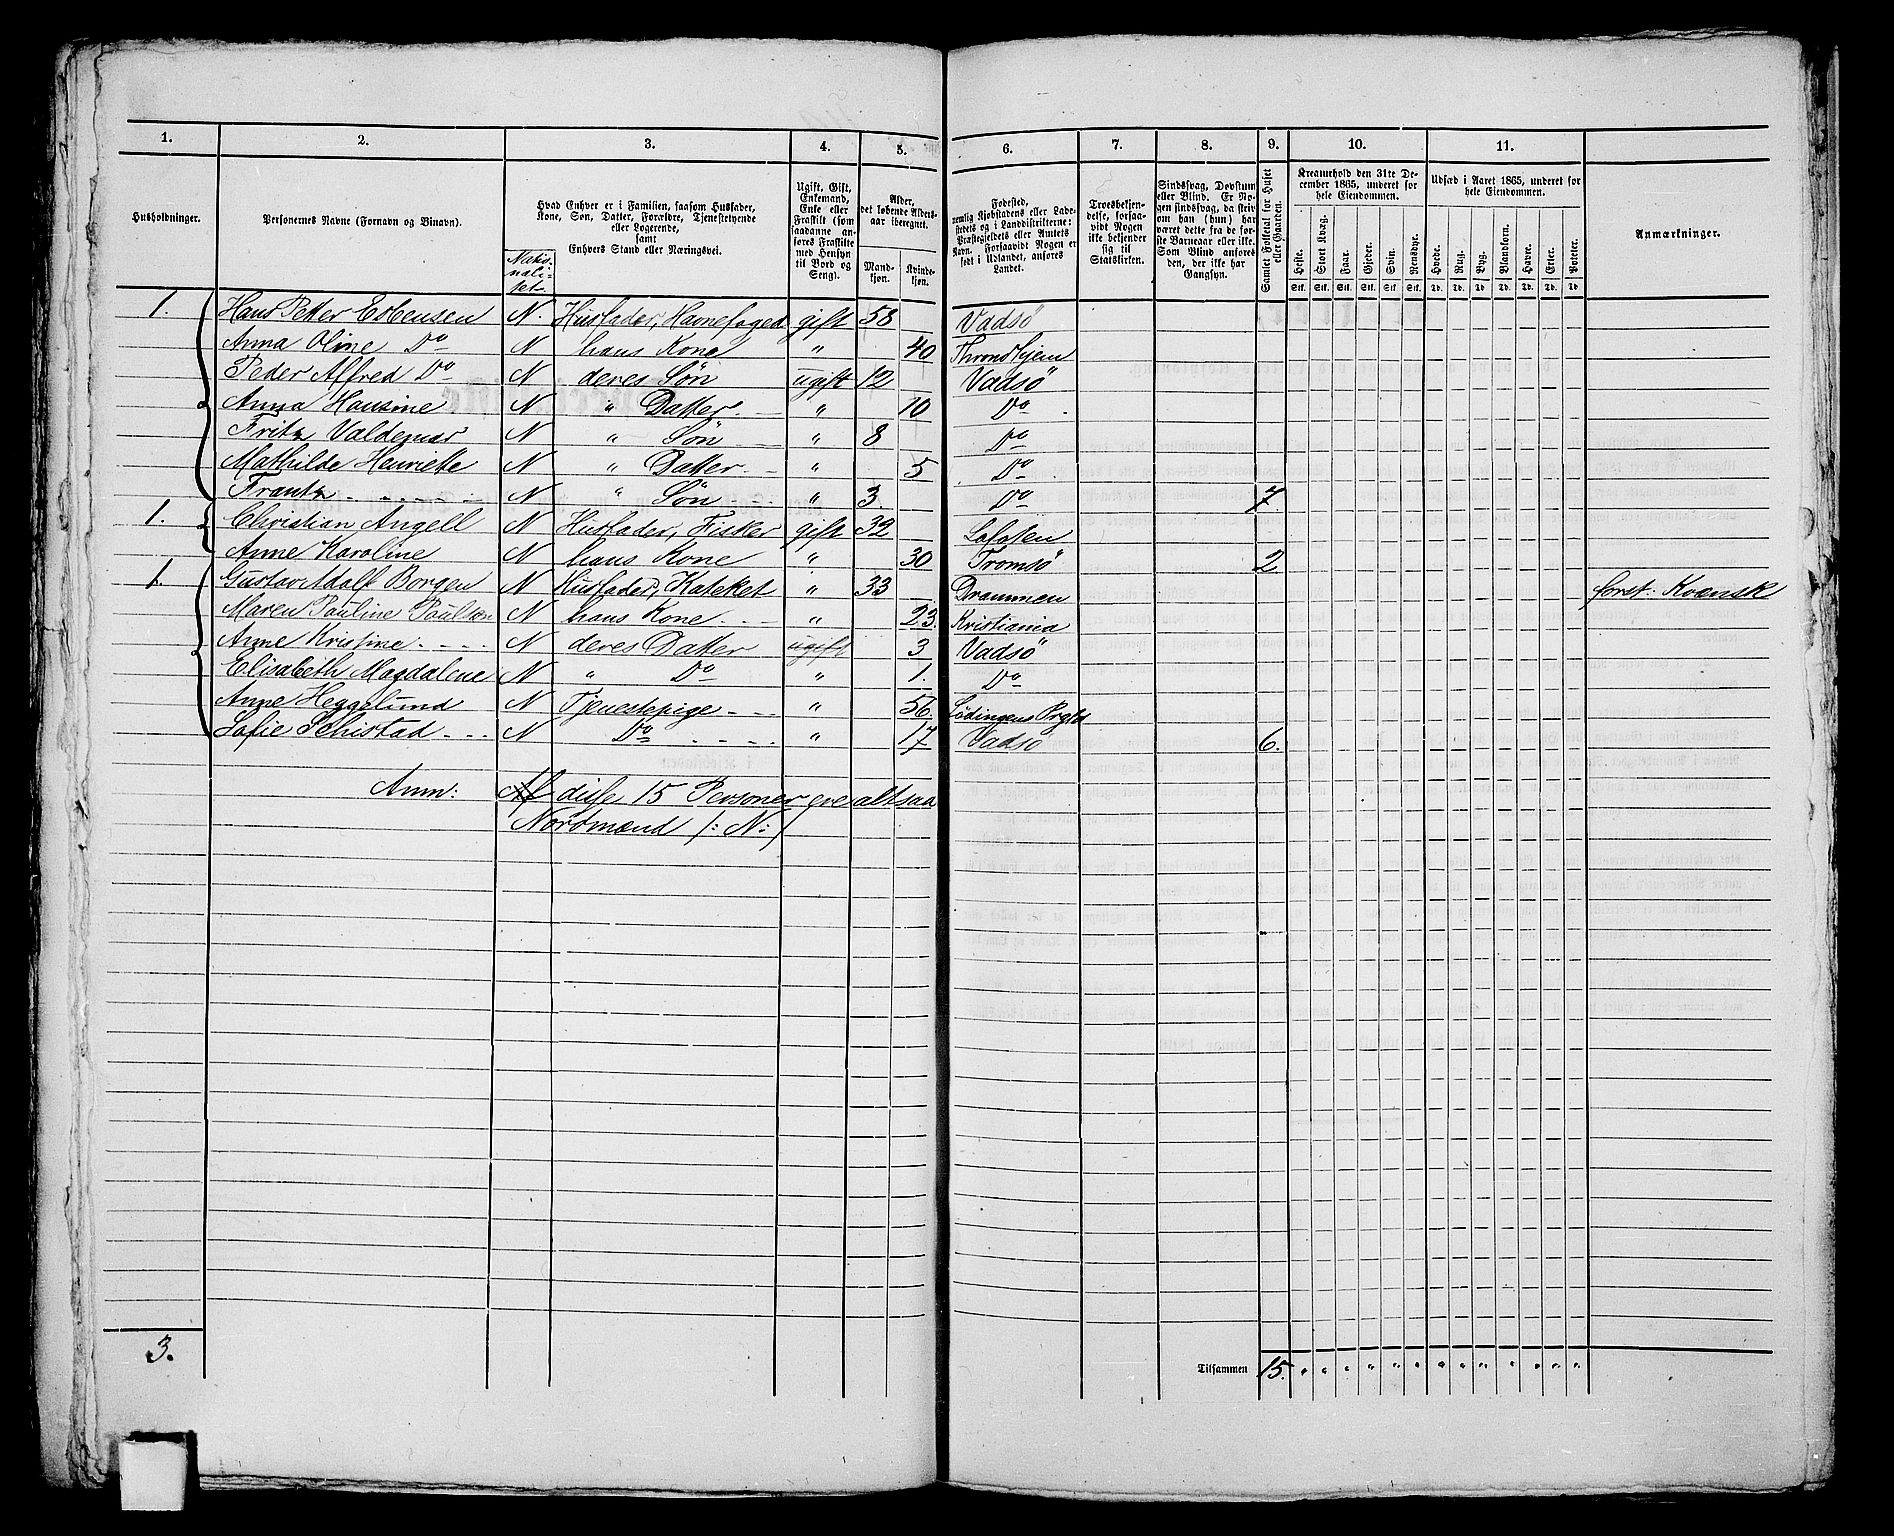 1. 2. 3. 4. 5. 6. 7. 8. 9. 10. 11.
Husholdninger.
Personernes Navne (Fornavn og Binavn).
Natio-
nali-
tet
Hvad Enhver er i Familien, saasom Husfader,
Kone, Søn, Datter, Forældre, Tjenestetyende
eller Logerende,
samt
Enhvers Stand eller Næringsvei.
Ugift, Gift,
Enkemand,
Enke eller
Fraskilt (som
saadanne an-
føres Fraskilte
med Hensyn
til Bord og
Seng).
Alder,
det løbende Alders-
aar iberegnet.
Mand-
kjøn.
Kvinde-
kjøn.
Fødested,
nemlig Kjøbstadens eller Lade-
stedets og i Landdistrikterne:
Præstegjeldets eller Amtets
Navn. Forsaavidt Nogen er
født i Udlandet, anføres
Landet.
Troesbekjen-
delse, forsaa-
vidt Nogen
ikke bekjender
sig til
Statskirken.
Sindssvag, Døvstum
eller Blind. Er No-
gen sindssvag, da skriv
om han (hun) har
været dette fra de før-
ste Barneaar eller ikke.
Som Blind anføres
den, der ikke har
Gangsyn.
Samlet Folketal for Huset
eller Gaarden.
Kreaturhold den 31te De-
cember 1865, underet for
hele Eiendommen.
Heste. Stort Kvæg. Faar. Gjeder. Svin. Rensdyr.
Stk. Stk. Stk. Stk. Stk. Stk.
Udsæd i Aaret 1865, underet for
hele Eiendommen.
Hvede. Rug. Byg. Blandkorn. Havre. Erter. Poteter.
Td. Td. Td. Td. Td. Td. Td.
Anmærkninger.
1. Hans Petter Esbensen N. Husfader, Havnefoged gift 58 Vadsö
Anna Oline Do N hans Kone " 40 Throndhjem
Peder Alfred Do N deres Søn ugift 12 Vadsö
Anna Hansine N " Datter " 10 Do
Fritz Valdemar N " Søn " 8 Do
Mathilde Henriette N " Datter " 5 Do
Frantz N " Søn " 3. Do 7
1. Christian Angell N Husfader, Fisker gift 32 Lofoten
Anne Karoline N hans Kone " 30 Tromsö 2
1. Gustav Adolf Borgen N Husfader, Kateket " 33 Drammen forst. Kvænsk
Maren Pauline Paulson N hans Kone " 23. Kristiania
Anne Kristine N deres Datter ugift 3 Vadsö
Elisabeth Magdalene N " Do " 1. Do
Anne Heggelund N Tjenestepige " 56. Lödingens Prgld
Sofie Schistad N Do " 17 Vadsö 6.
Anm: Af disse 15 Personer ere altsaa
Nordmænd /: N :/
3.
Tilsammen 15. " " " " " " " " " " " " "